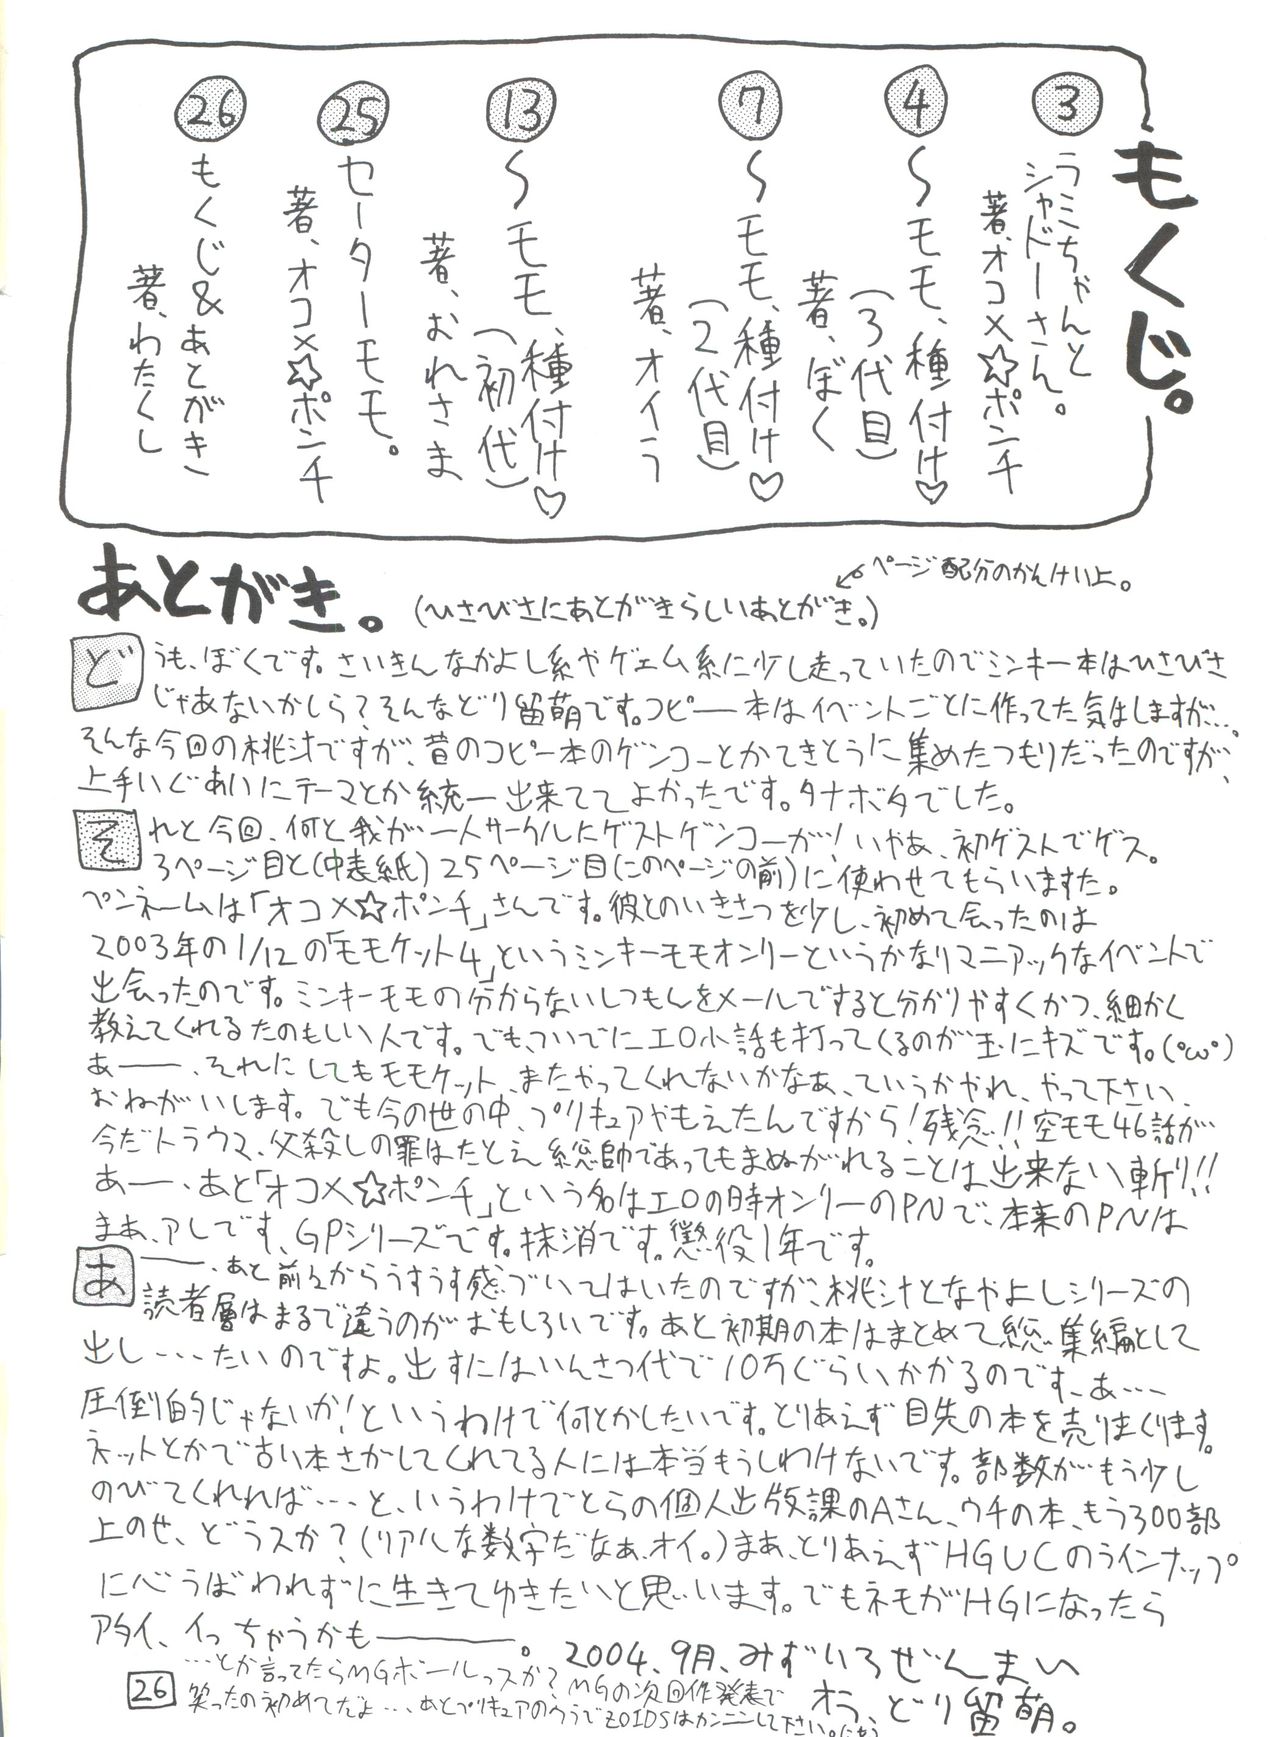 もくじ。
③
ラミちゃんと
シャドーさん。
著、オコメ☆ポンチ
④
～モモ、種付け♡
(3代目)
著、ぼく
⑦
～モモ、種付け♡
(2代目)
著、オイラ
⑬
～モモ、種付け♡
(初代)
著、おれさま
㉕
セーターモモ。
著、オコメ☆ポンチ
㉖
もくじ&あとがき
著、わたくし
ページ配分のかんけい上。
あとがき。(ひさびさにあとがきらしいあとがき。)
どうも、ぼくです。さいきんなかよし系やゲェム系に少し走っていたのでミンキー本はひさびさ
じゃあないかしら?そんなどり留萌です。コピー本はイベントごとに作ってた気はしますが…。
そんな今回の桃汁ですが、昔のコピー本のゲンコーとかてきとうに集めたつもりだったのですが、
上手いぐあいにテーマとか統一出来ててよかったです。タナボタでした。
それと今回、何と我が一人サークルにゲストゲンコーが!いやあ、初ゲストでゲス。
3ページ目と(中表紙)25ページ目(このページの前)に使わせてもらいますた。
ペンネームは「オコメ☆ポンチ」さんです。彼とのいきさつを少し、初めて会ったのは
2003年の1/12の「モモケット4」というミンキーモモオンリーというかなりマニアックなイベントで
出会ったのです。ミンキーモモの分からないしつもんをメールですると分かりやすくかつ、細かく
教えてくれるたのもしい人です。でも、ついでにエロ小話も打ってくるのが玉にキズです。(°ω°)
あー、それにしてもモモケット、またやってくれないかなあ、ていうかやれ、やって下さい、
おねがいします。でも今の世の中、プリキュアやもえたんですから!残念!!空モモ46話が…
今だトラウマ、父殺しの罪はたとえ総帥であってもまぬがれることは出来ない斬り!!
あー、あと「オコメ☆ポンチ」という名はエロの時オンリーのPNで、本来のPNは
まあ、アレです、GPシリーズです。抹消です。懲役1年です。
あー、あと前々からうすうす感づいてはいたのですが、桃汁となやよしシリーズの
読者層はまるで違うのがおもしろいです。あと初期の本はまとめて総集編として
出し…たいのですよ。出すにはいんさつ代で10万ぐらいかかるのです、あ…
圧倒的じゃないか!というわけで何とかしたいです。とりあえず目先の本を売りまくります。
ネットとかで古い本さがしてくれてる人には本当もうしわけないです。部数がもう少し
のびてくれれば…と、いうわけでとらの個人出版課のAさん、ウチの本、もう300部
上のせ、どうスか?(リアルな数字だなぁ、オイ。)まあ、とりあえずHGUCのラインナップ
に心うばわれずに生きてゆきたいと思います。でもネモがHGになったら
アタイ、イっちゃうかも――。2004、9月、みずいろぜんまい
…とか言ってたらMGボールっスか?MGの次回作発表で
笑ったの初めてだよ…あとプリキュアのウラでZOIDSはカンニンして下さい。
オラ、どり留萌。
26